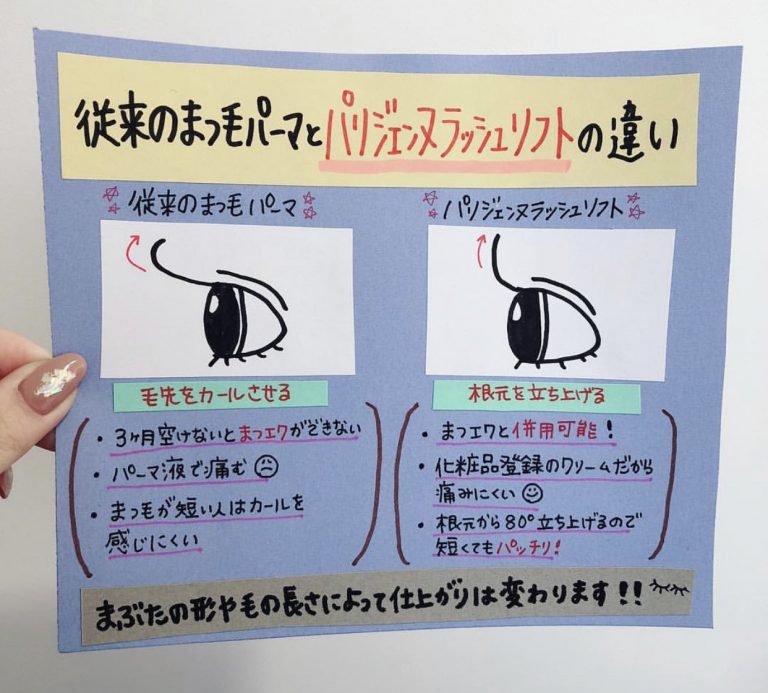 従来のまつ毛パーマとパリジェンヌラッシュリフトの違い
従来のまつ毛パーマ
毛先をカールさせる
・3ヶ月空けないとまつエクができない
・パーマ液で痛む
・まつ毛が短い人はカールを
感じにくい
パリジェンヌラッシュリフト
根元を立ち上げる
・まつエクと併用可能!
・化粧品登録のクリームだから
痛みにくい
・根元から80°立ち上げるので
短くてもパッチリ!
まぶたの形や毛の長さによって仕上がりは変わります!!